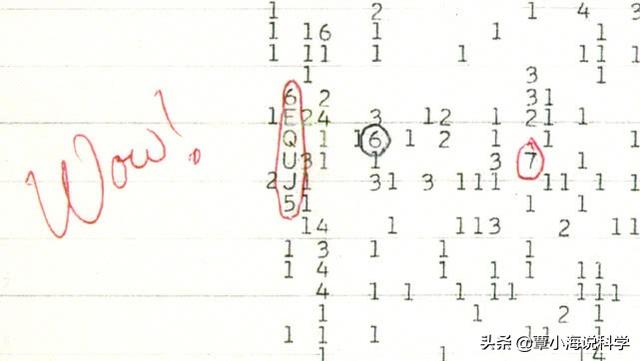 1 2 1 4 3
1 16 1 1 1
1 11 1 1 11 1
1 3 1
6 2 31
1 E 24 3 12 1 21 1
Q 1 16 1 2 1 1 1
U 31 1 3 7 1
2 J 1 31 3 111 11 1 1
5 1 1 1
14 1 113 2 11
1 3 1 1 1
1 4 1 1 1 11
4 1 1 1 11 111
1 1 2 1
1 1 1 1 11 1
1 1 14
Wow!
头条 @覃小海说科学